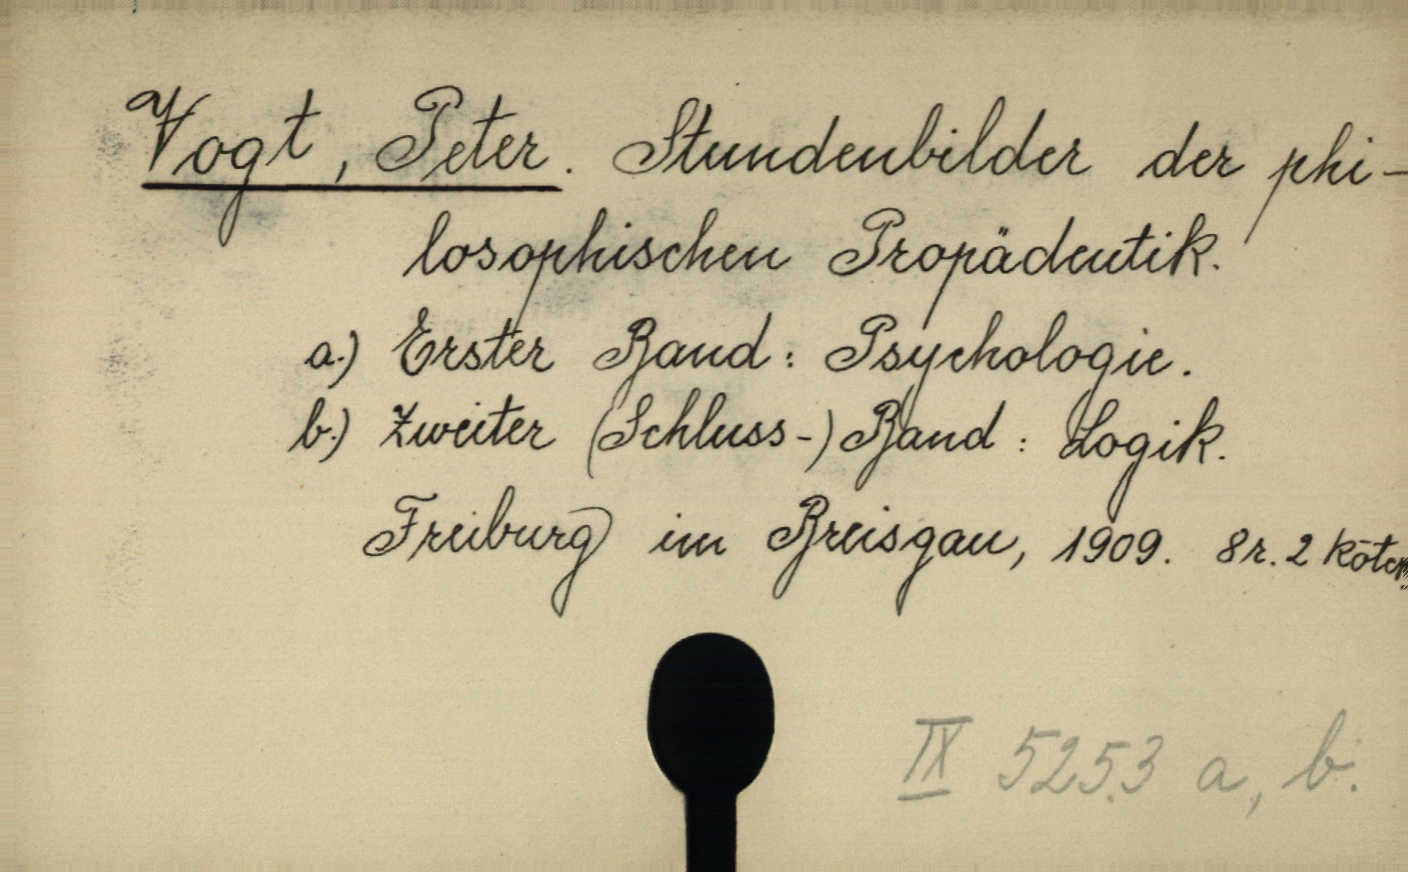 Vogt, Peter. Stundenbilder der phi-
losophischen Propädeutik.
a.) Erster Band: Psychologie.
b.) Zweiter (Schluss-) Band: Logik.
Freiburg im Breisgau, 1909. 8r. 2 Köten
IX 5253 a, b.